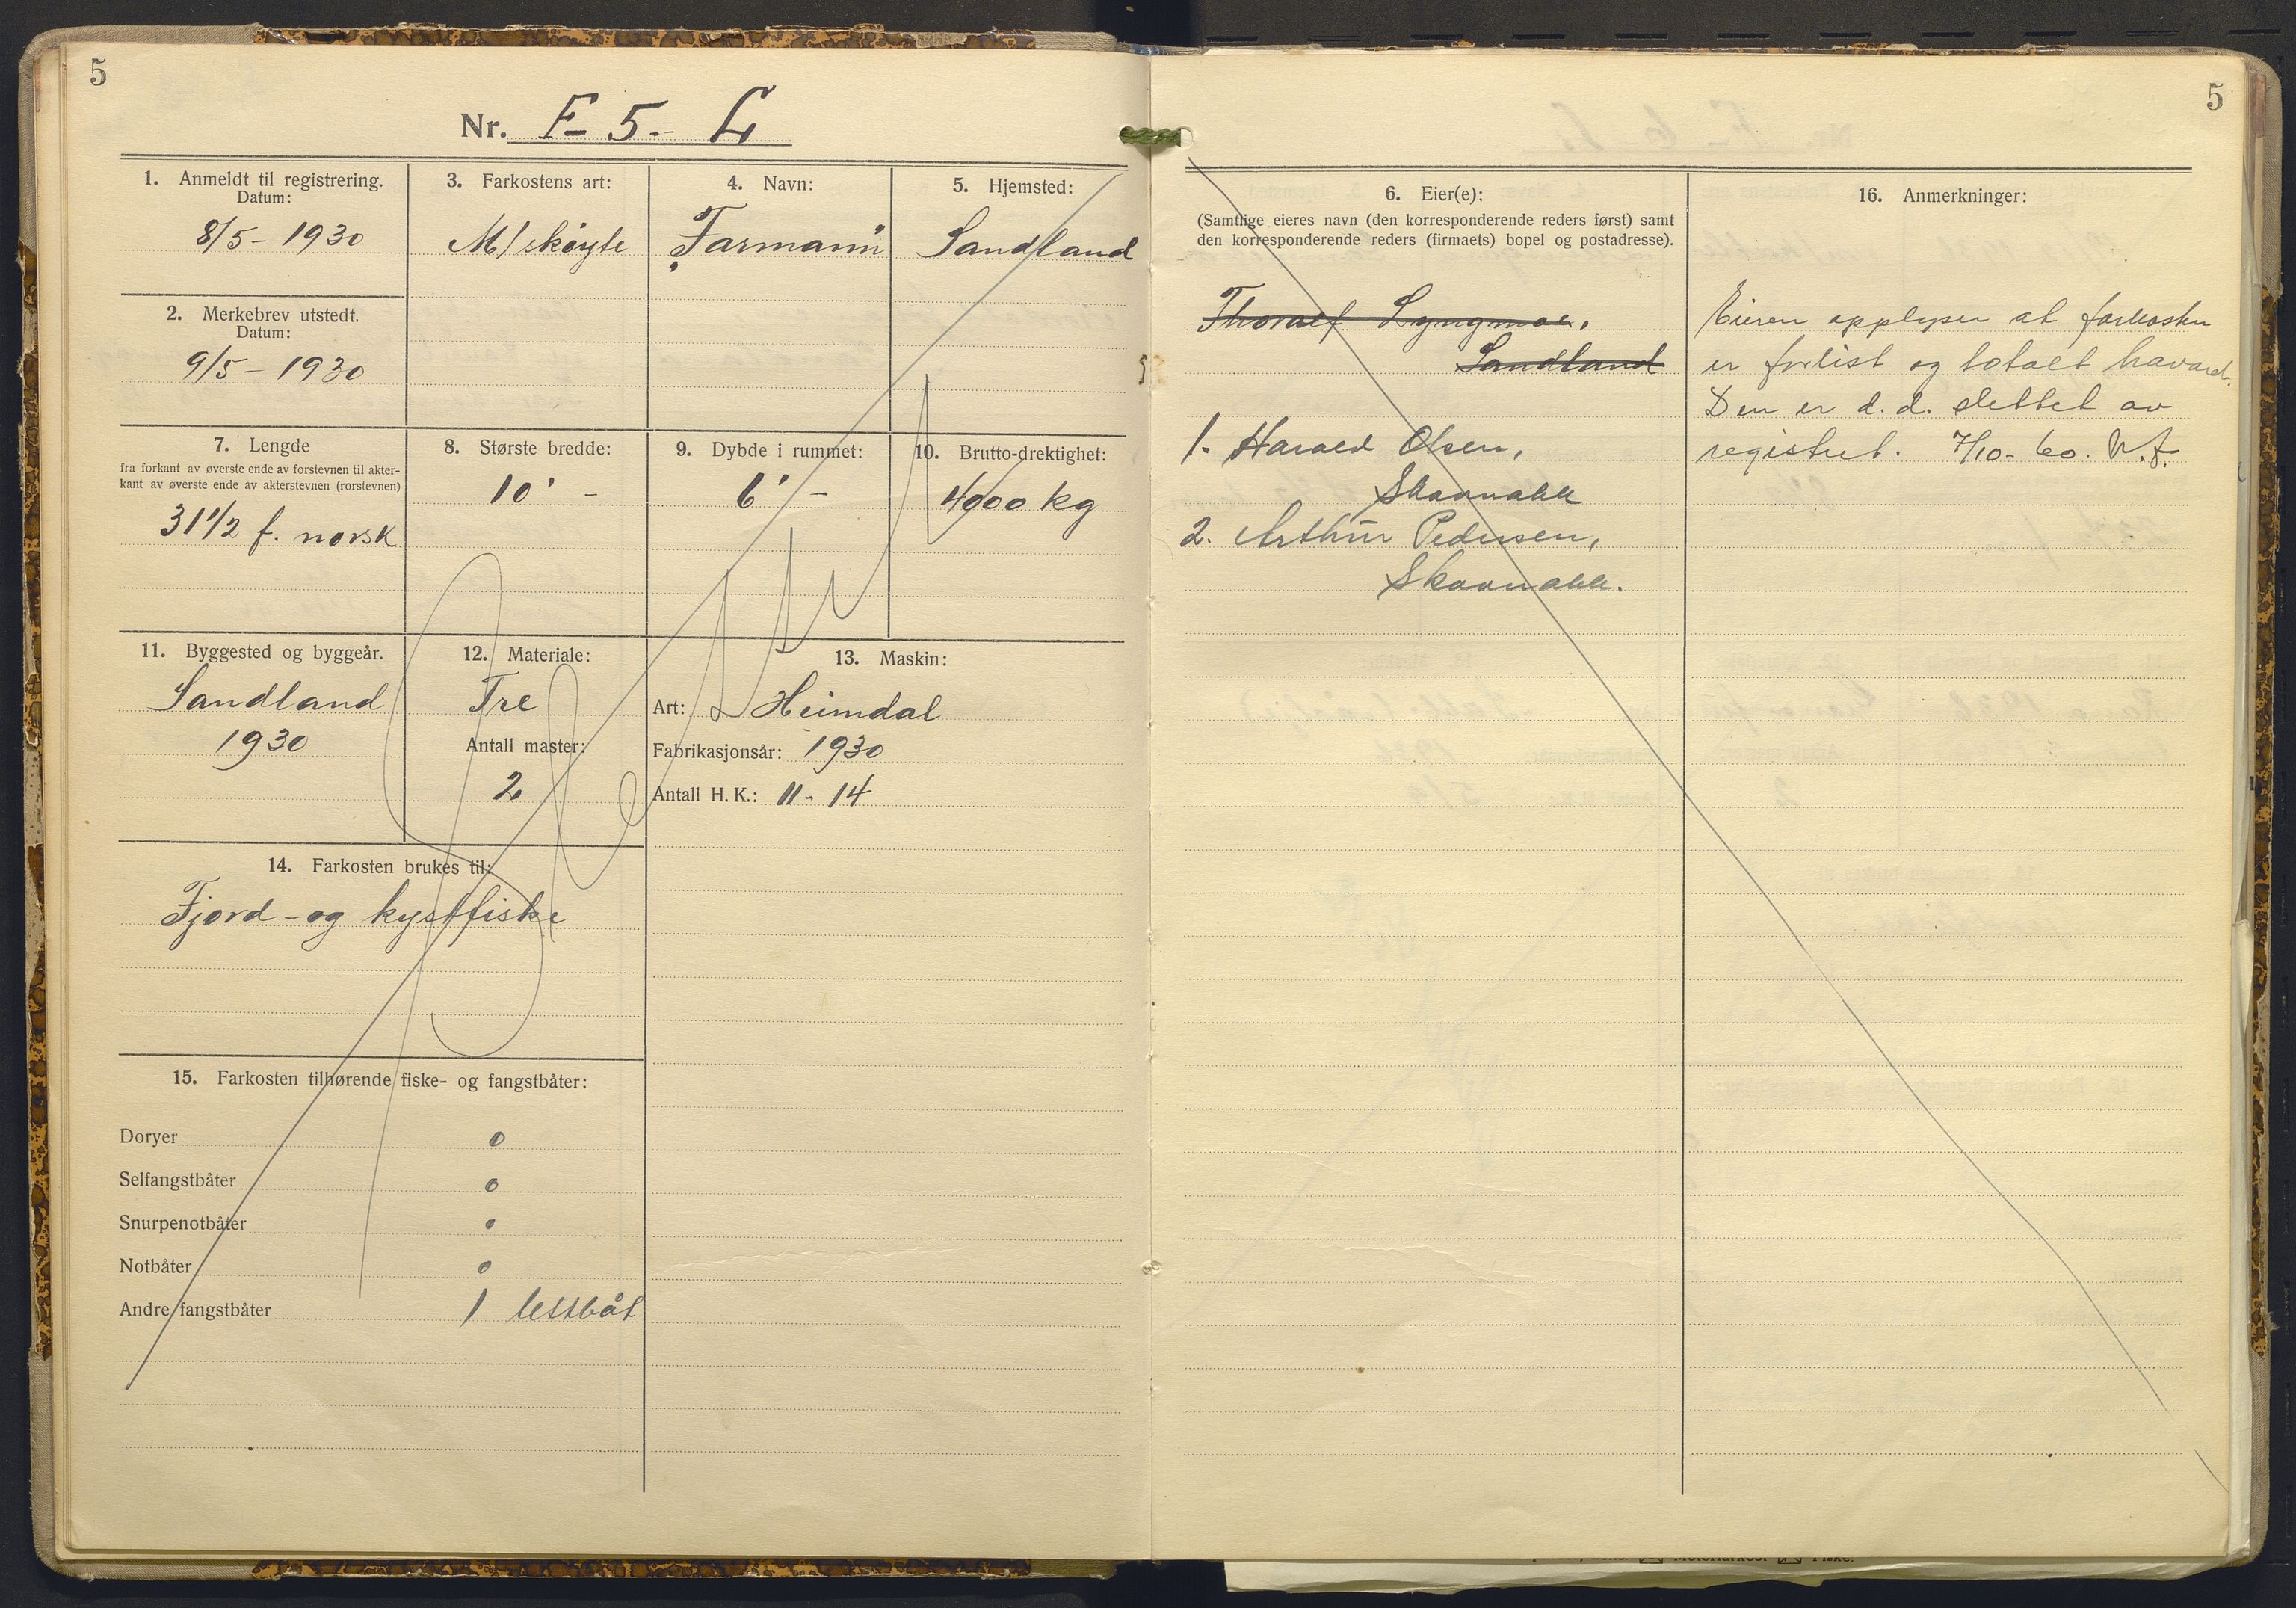 5
Nr. F-5.-L
1. Anmeldt til registrering.
Datum:
8/5-1930
2. Merkebrev utstedt.
Datum:
9/5-1930
3. Farkostens art:
M/skøyte
4. Navn:
"Farmann"
5. Hjemsted:
Sandland
7. Lengde
fra forkant av øverste ende av forstevnen til akter-
kant av øverste ende av akterstevnen (rorstevnen)
31 1/2 f. norsk
8. Største bredde:
10' -
9. Dybde i rummet:
6' -
10. Brutto-drektighet:
4000 kg
11. Byggested og byggeår.
Sandland
1930
12. Materiale:
Tre
Antall master:
2
13. Maskin:
Art: Heimdal
Fabrikasjonsår: 1930
Antall H. K.: 11-14
14. Farkosten brukes til:
Fjord-og kystfiske
Slettet
15. Farkosten tilhørende fiske- og fangstbåter:
Doryer 0
Selfangstbåter 0
Snurpenotbåter 0
Notbåter 0
Andre fangstbåter 1 lettbåt
5
6. Eier(e):
(Samtlige eieres navn (den korresponderende reders først) samt
den korresponderende reders (firmaets) bopel og postadresse).
Thoralf Lyngmoe,
Sandland
1. Harald Olsen,
Skavnakk
2. Arthur Pedersen,
Skavnakk.
16. Anmerkninger:
Eieren opplyser at farkosten
er forlist og totalt havard.
Den er d.d. slettet av
registret. 7/10-60.